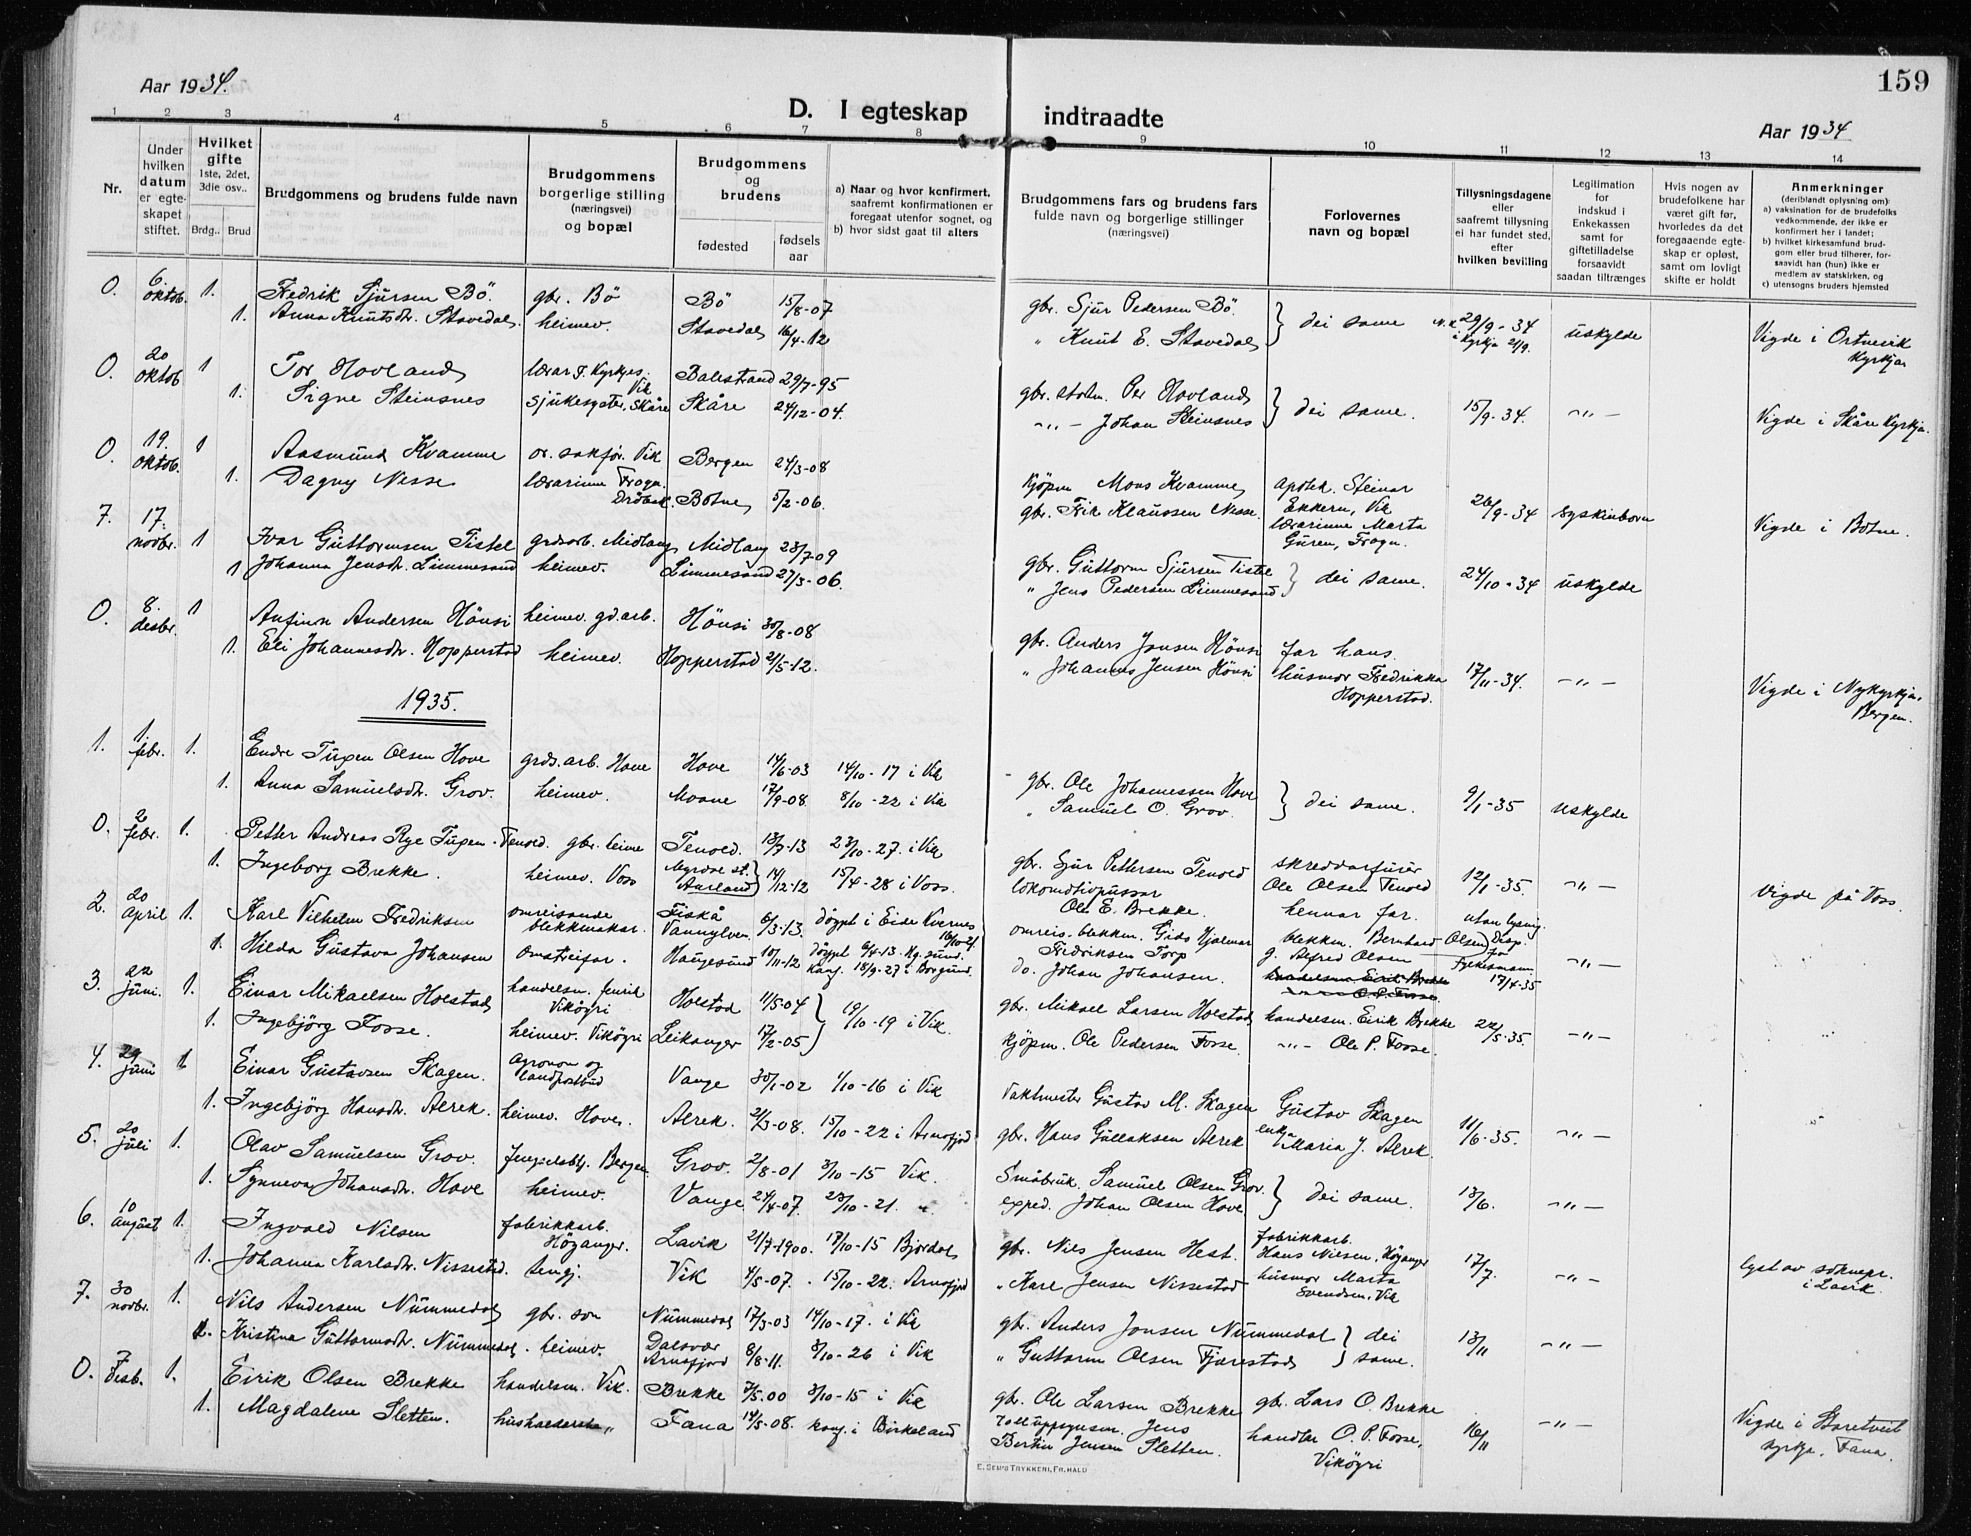 159
Aar 1934.
D. I egteskap indtraadte
Aar 1934
1 2 3 4 5 6 7 8 9 10 11 12 13 14
Nr.
Under hvilken datum er egteskapet stiftet.
Hvilket gifte 1ste, 2det, 3die osv..
Brdg.. Brud
Brudgommens og brudens fulde navn
Brudgommens borgerlige stilling (næringsvei) og bopæl
Brudgommens og brudens
fødested
fødsels aar
a) Naar og hvor konfirmert, saafremt konfirmationen er foregaat utenfor sognet, og
b) hvor sidst gaat til alters
Brudgommens fars og brudens fars fulde navn og borgerlige stillinger (næringsvei)
Forlovernes navn og bopæl
Tillysningsdagene eller saafremt tillysning ei har fundet sted, efter hvilken bevilling
Legitimation for indskud i Enkekassen samt for giftetilladelse forsaavidt saadan tiltrænges
Hvis nogen av brudefolkene har været gift før, hvorledes da det foregaaende egteskap er opløst, samt om lovligt skifte er holdt
Anmerkninger (deriblandt oplysning om):
a) vaksination for de brudefolks vedkommende, der ikke er konfirmert her i landet;
b) hvilket kirkesamfund brudgom eller brud tilhører, forsaavidt han (hun) ikke er medlem av statskirken, og
c) utensogns bruders hjemsted
0. 6. oktob. 1. Fredrik Sjursen Bö. gbr. Bö Bö 15/8-07 gbr. Sjur Pedersen Bö. } dei same 29/9-34 i kyrkja uskylde Vigde i Ortnevik kyrkja
1. Anna Knutsdtr. Stavedal. heimev. Stavedal 16/4-12 " Knut E. Stavedal
0. 20 oktob 1 Tor Hovland lærar Vik Balestrand 29/7-95 gbr. Per Hovland } dei same. 15/9-34. -"- Vigde i Skåre kyrkja.
1. Signe Steinsnes sjukesyster, Skåre Skåre 24/12-04. -"- Johan Steinsnes
0. 19. oktob. 1 Aasmund Kvamme or. sakför. Vik Bergen 24/3-08 kjöpm Mons Kvamme apotek. Steinar Ekkern, Vik 26/9-34 syskinborn Vigde i Botne.
1. Dagny Nesse lærarinne Frogn Dröbak. Botne 5/2-06. gbr. Klaussen Nesse. lærarinne Marta Guren, Frogn.
7. 17. novbr. 1 Ivar Guttormsen Tistel grdsarb. Midlang Midlang 23/7-09 gbr. Guttorm Sjursen Tistel } dei same. 24/10-34 uskylde
1 Johanna Jensdtr. Limmesand heimev. Limmesand 27/3-06. " Jens Pedersen Limmesand
0. 8. desbr. 1 Anfinn Andersen Hönsi heimev. gd.arb. Hönsi 30/8-08 gbr. Anders Jonsen Hönsi far hans. 17/11-34. -"- Vigde i Nykyrkja, Bergen.
1. Eli Johannesdtr. Hopperstad heimev. Hopperstad 21/5-12. " Johannes Jensen Hönsi husmor Fredrikka Hopperstad.
1935.
1. 1. febr. 1. Endre Tugen Olsen Hove grds.arb. Hove Hove 14/6-03 14/10-17 i Vik gbr. Ole Johannessen Hove } dei same. 9/1-35 uskylde
1. Anna Samuelsdtr. Grov. heimev. Moane 17/9-08. 8/10-22 i Vik " Samuel O. Grov.
0. 2 febr. 1. Petter Andreas Rye Tugen-Tenold. gbr. heime Tenold. 13/7-13 23/10-27. i Vik gbr. Sjur Pettersen Tenold skreddarfurer Ole Olsen Tenold 12/1-35. -"- Vigde på Voss.
1. Ingeborg Brekke. heimev. Voss Myrdal st. Aurland 14/12-12 15/4-28 i Voss. lokomotivpussar Ole E. Brekke. hennar far.
2. 20 April 1. Karl Vilhelm Fredriksen omreisande blekkmakar. Fiskå Vannylven 6/3-13. Döypt i Eide Kvernes omreis. blekkm. Hjalmar Fredriksen Torp blekkm. Bernhard Olsen utan lysing. Disp. frå Fylkesmann 17/4-35 -"-
1. Hilda Gustava Johansen Omstreifar. Haugesund 10/11-12 Döypt 6/4-13. Hg.sund. Konf. 18/9-27 i Borgund. do. Johan Johansen. g. Alfred Olsen
3. 22 juni. 1. Einar Mikaelsen Holstad handelsm. Vikögri Holstad 11/5-04 } 19/10-19 i Vik. gbr. Mikael Larsen Holstad handelsm. Eirik Brekke 22/5-35. -"-
1. Ingebjörg Fosse. heimev. Vikögri Leikanger 17/2-05 kjöpm. Ole Pedersen Fosse. -"- Ole P. Fosse.
4. 29 juni 1 Einar Gustavsen Skagen. agronom og landpostbud Vange 30/1-02 1/10-16 i Vik Vaktmester Gustav M. Skagen Gustav Skagen 11/6-35. -"-
1. Ingebjörg Hansdtr. Alrek. heimev. Hove. Alrek. 21/3-08. 15/10-22 i Arnafjord gbr. Hans Gullaksen Alrek enkja Maria J. Alrek.
5. 20 juli 1. Olav Samuelsen Grov. Bergen Grov. 2/8-01 3/10-15 Vik. Småbruk. Samuel Olsen Grov. } dei same. 13/6. -"-
1. Synneva Johansdtr. Hove heimev. Vange 24/4-07. 23/10-21. " exped. Johan Olsen Hove
6. 10 august 1. Ingvald Nilsen fabrikkarb. Höyanger. Lavik 21/7-1900. 17/10-15 Bjordal gbr. Nils Jensen Hest. fabrikkarb. Hans Nilsen, Höyanger 17/7. -"- lyst av sóknepr. i Lavik.
1. Johanna Karlsdtr. Nissestad. tenj. Vik 4/5-07. 15/10-22. Arnafjord " Karl Jensen Nissestad husmor Marta Svendsen, Vik
7. 30 novbr. 1. Nils Andersen Nummedal gbr. son Nummedal 17/3-03 14/10-17. i Vik gbr. Anders Jonsen Nummedal } dei same. 13/11 -"-
1. Kristina Guttormsdtr. Nummedal. heimev. Dalsvær Arnafjord 8/8-11. 3/10-26 i Vik " Guttorm Olsen Fjærestad
0. 7 Desb. 1. Eirik Olsen Brekke handelsm. Vik. Brekke 7/5.00 3/10-15 i Vik gbr. Ole Larsen Brekke gbr. Lars O. Brekke 16/11 -"- Vigde i Storetveit kyrkja, Fana.
1. Magdalene Sletten. hushalderske Fana 14/5-08. konf. i Birkeland Tolluppsynsm. Jens Bertin Jensen Sletten. handlar O. P. Fosse, Vikögri
E. SEM'S TRYKKERI, FR.HALD